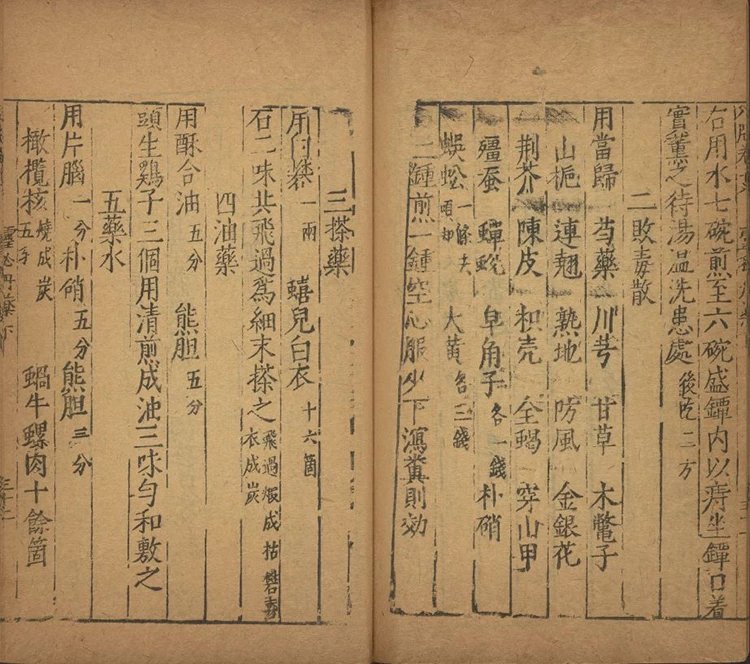 右用水七碗煎至六碗盛鐔内以痔坐鐔口着
實薰之待湯温洗患處後吃二方
二敗毒散
用當歸 芍藥 川芎 甘草 木鼈子
山梔 連翹 熟地 防風 金銀花
荆芥 陳皮 枳壳 全蝎 穿山甲
殭蚕 蟬蛻 皁角子各一錢 朴硝
蜈蚣一條去頭却 大黄各三錢
二鍾煎一鍾空心服少下瀉糞則効
三搽藥
用白礬一兩 蟢兒白衣十六箇
石二味共飛過爲細末搽之飛過煅成枯礬
衣成炭
四油藥
用酥合油五分 熊胆五分
頭生鷄子三個用清煎成油三味勻和敷之
五藥水
用片腦一分朴硝五分熊胆三分
橄欖核燒成炭五分 蝸牛螺肉十餘箇